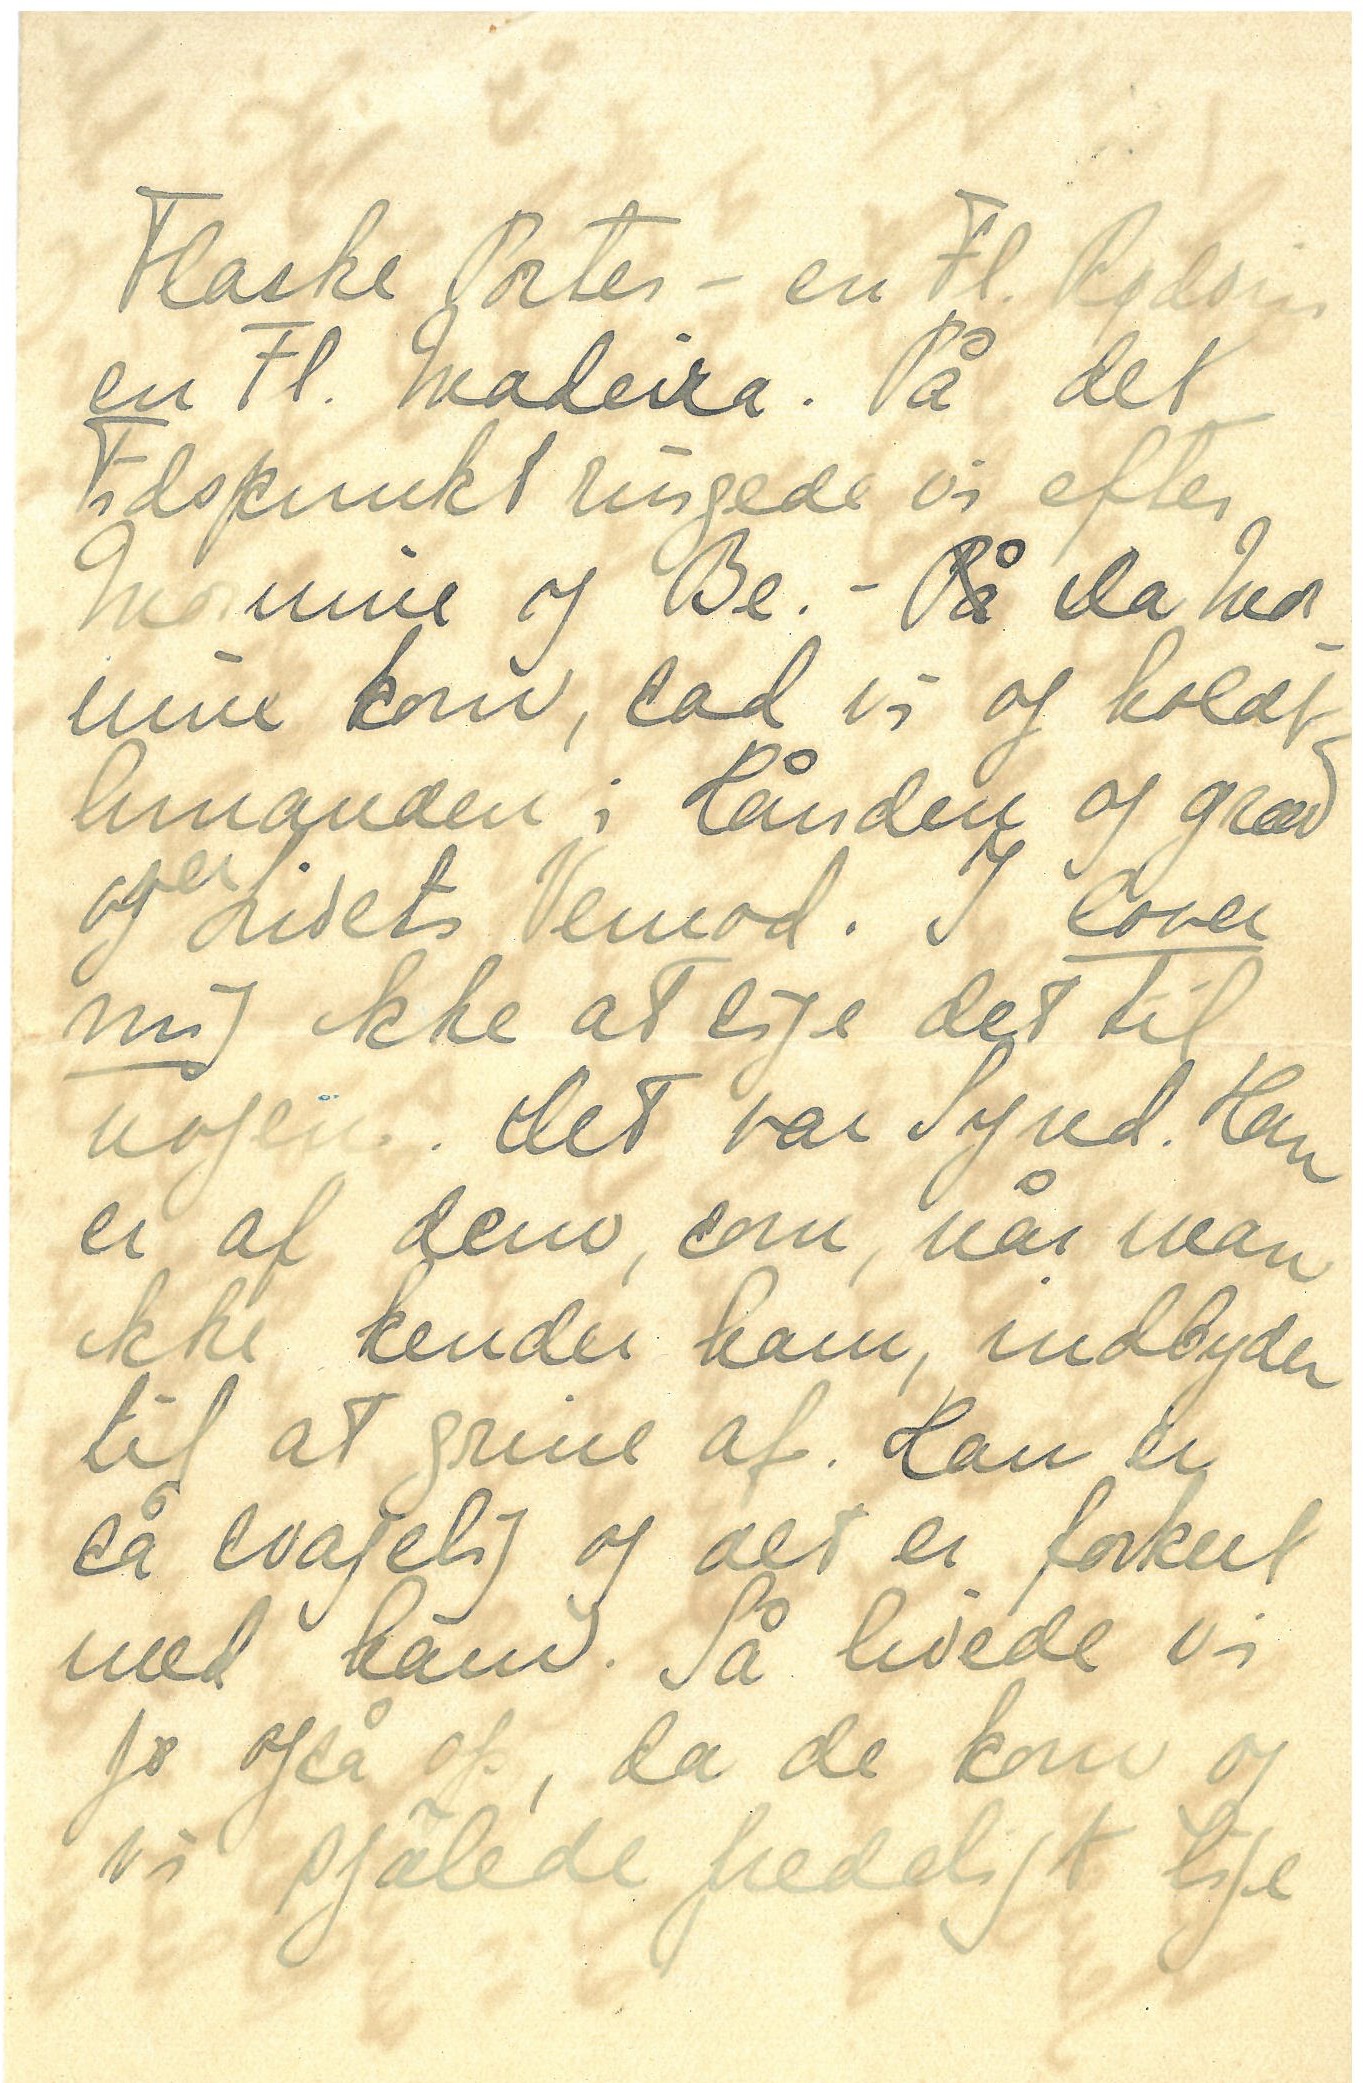 Flaske Porter – en Fl. Rødvin
en Fl. Madeira. På det
Tidspunkt ringede vi efter
Mornine og Be. – På da Mor
nine kom, sad vi og holdt
hinanden i Hånden og græd
over Livets Vemod. I lover
mig ikke at sige det til
nogen. Det var Synd. Han
er af dem, som, når man
ikke kender ham, indbyder
til at grine af. Han er
så svagelig og det er forkert
med ham. Så livede vi
jo også op, da de kom og
vi pjålede fredeligt lige